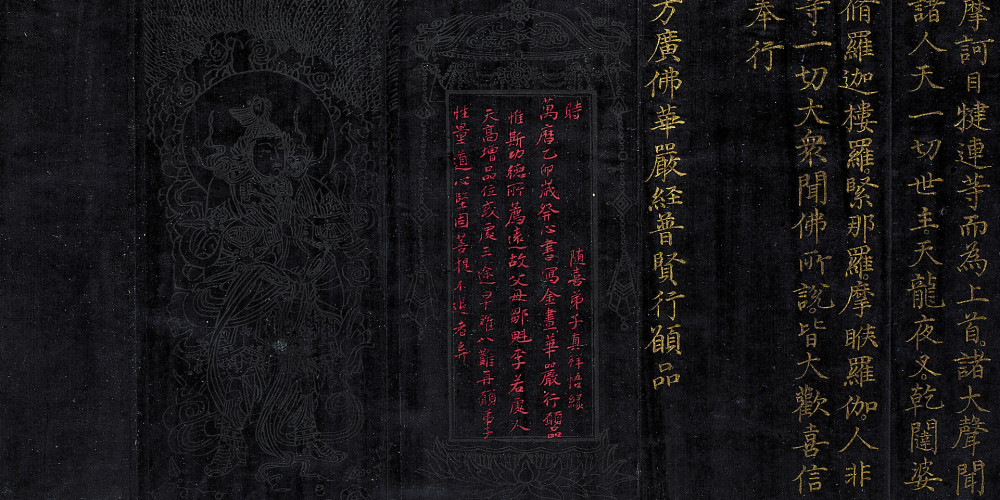 摩訶目犍連等而為上首諸大聲聞
諸人天一切世主天龍夜叉乾闥婆
脩羅迦樓羅緊那羅摩睺羅伽人非
等一切大衆聞佛所說皆大歡喜信
奉行
方廣佛華嚴経普賢行願品
時 随喜弟子真祥悟緣
萬曆乙卯歲發心書寫金畫華嚴行願品
惟斯功德所薦遠故父母鄒魁李若處人
天高增品位或處三途早離八難再願弟子
性量道心堅固菩提不退者矣